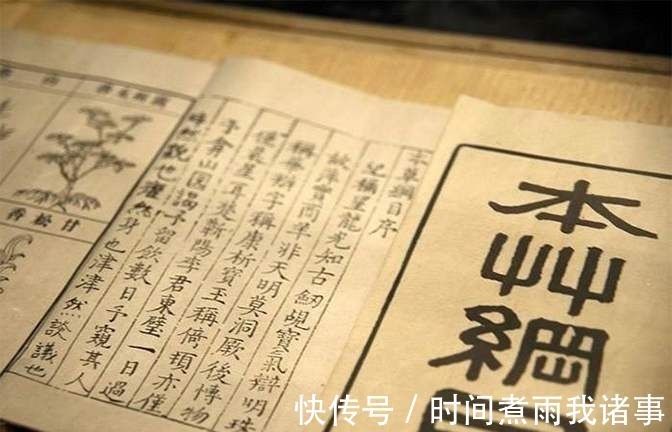 本艸綱
本草綱目序
紀稱望龍光知古劒覘寶氣辯明珠
故萍實商羊非天明莫洞厥後博物
稱華辯字稱康析寶玉稱倚頓亦僅
僅晨星耳楚蘄陽李君東璧一日過
予弇山園謁予留飲數日予窺其人
睟然貌也癯然身也津津然談議也
甘松香
快传号 / 时间煮雨我诸事